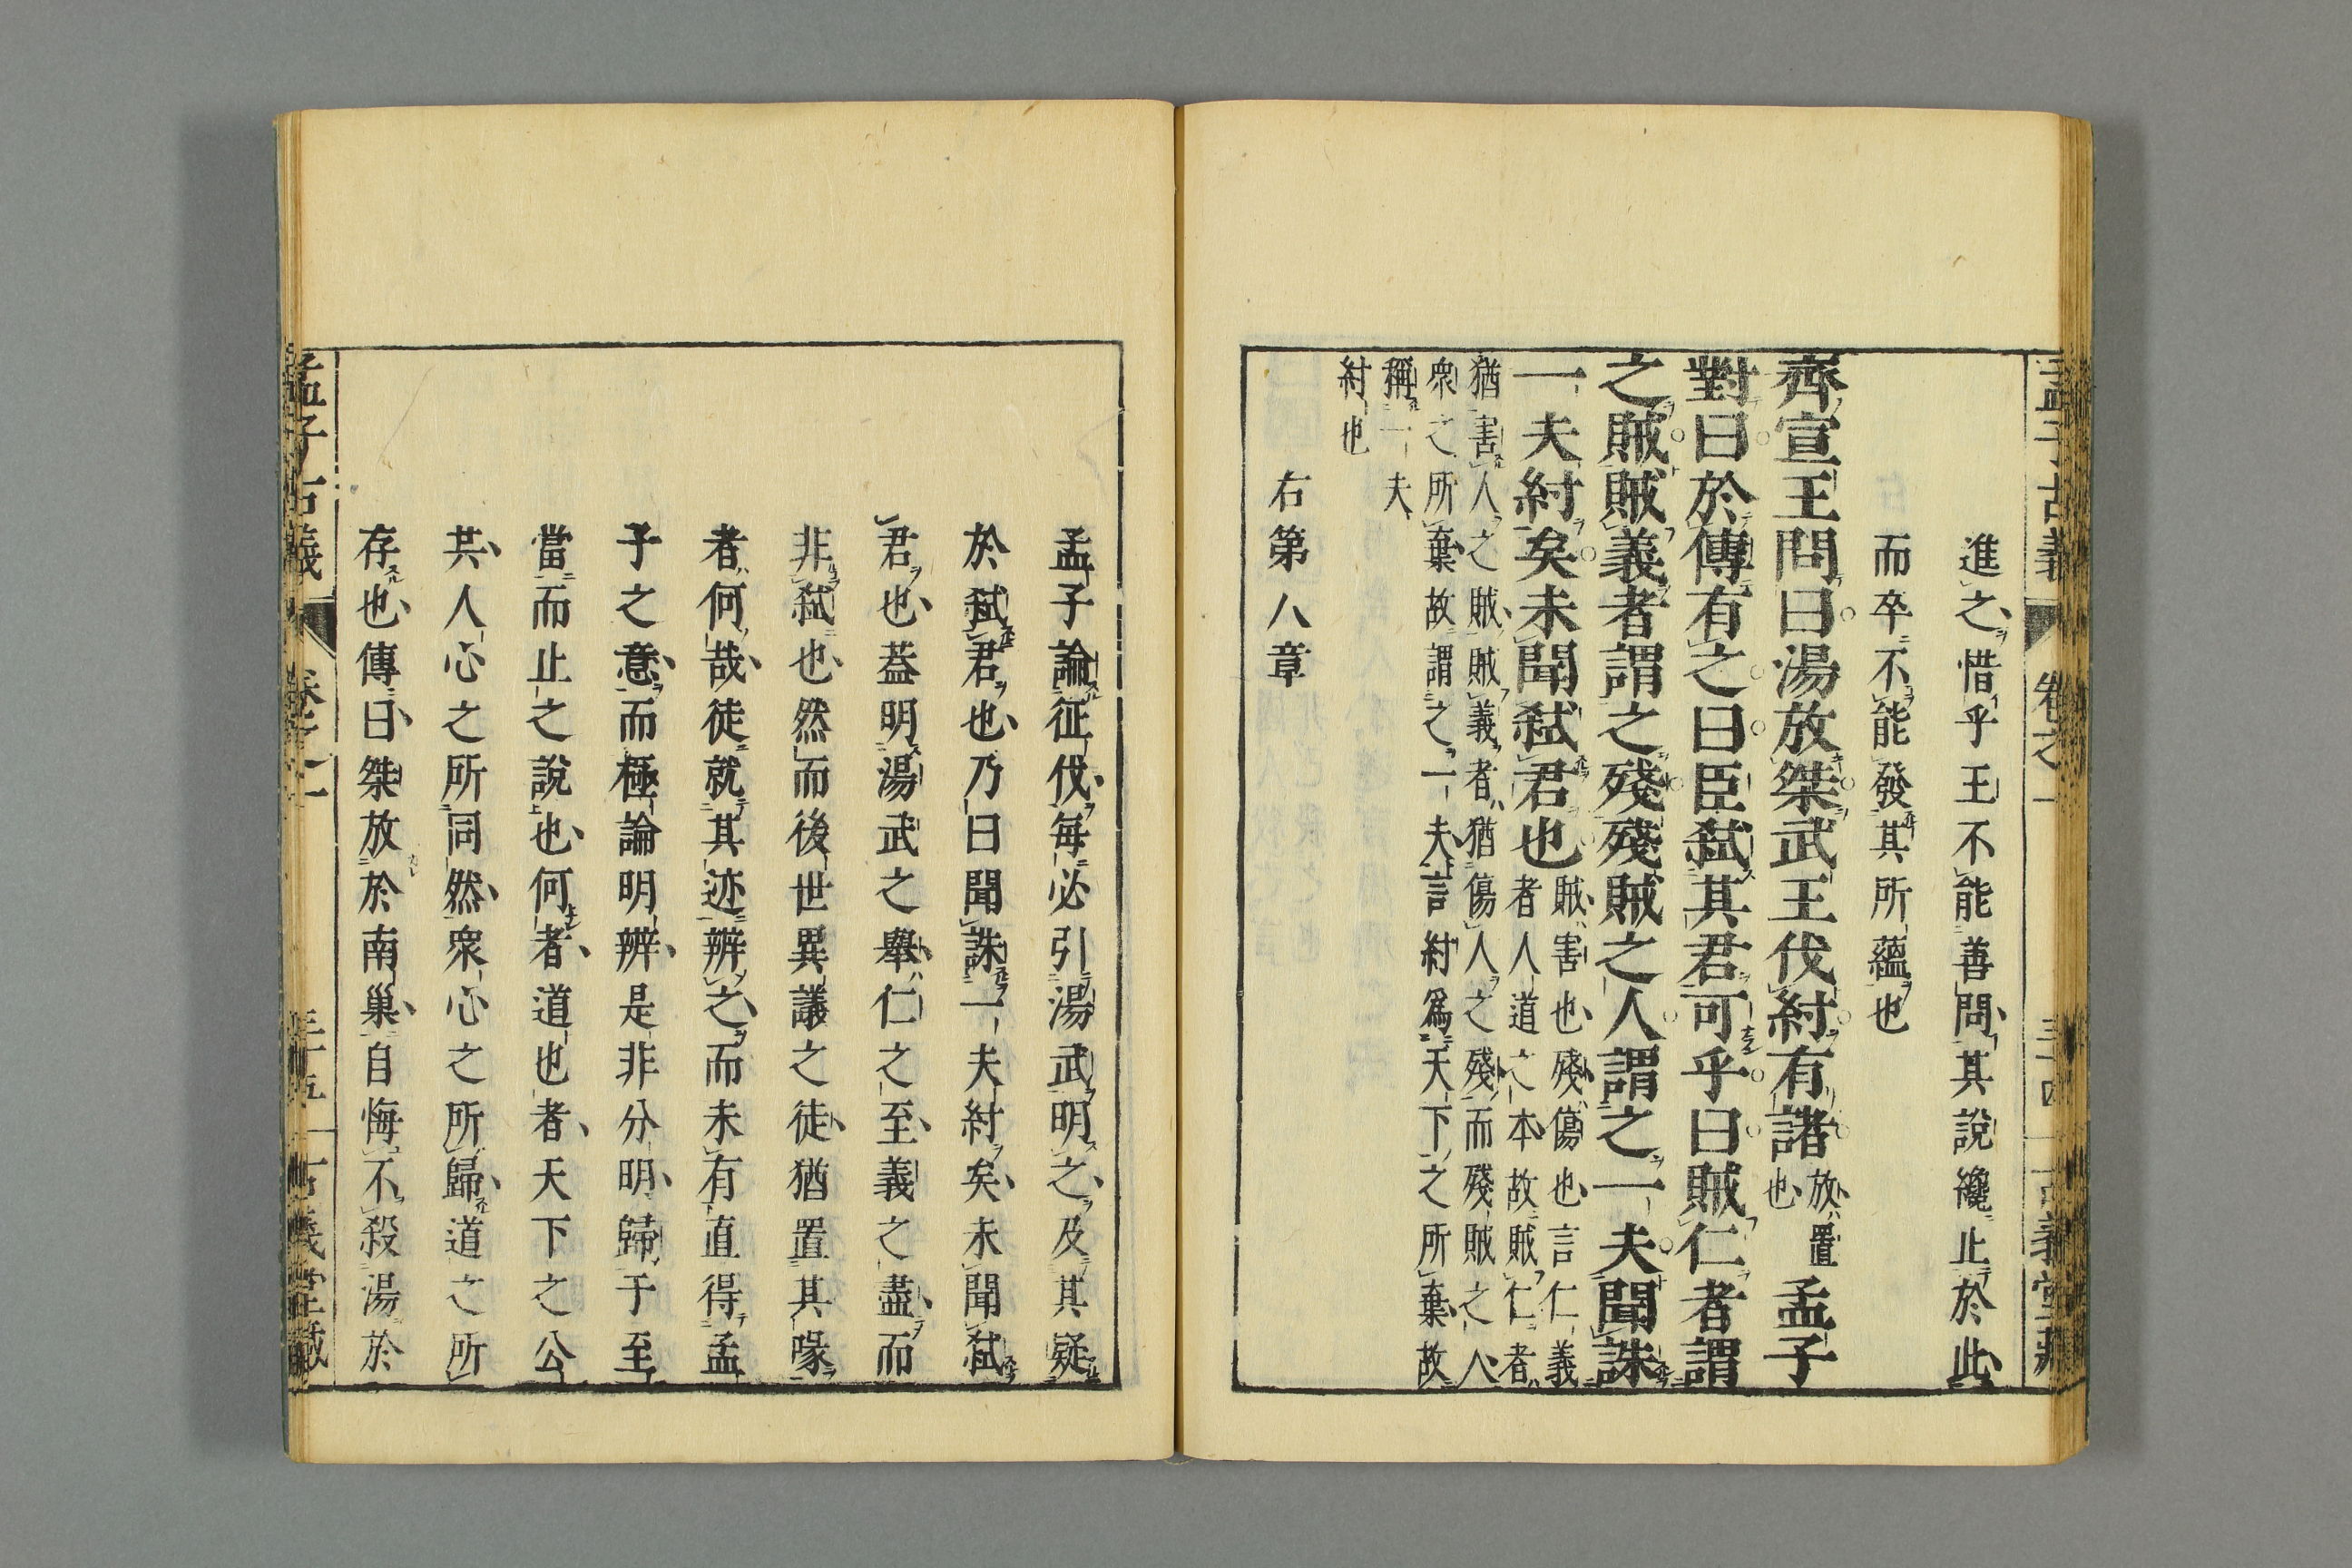 進之惜乎王不能善問其說纔止於此
而卒不能發其所蘊也
齊宣王問曰湯放桀武王伐紂有諸
放置
也
孟子
對曰於傳有之曰臣弑其君可乎曰賊仁者謂
之賊賊義者謂之殘殘賊之人謂之一夫聞誅
一夫紂矣未聞弑君也
賊害也殘傷也言仁義
者人道之本故賊仁者
猶害人之賊賊義者猶傷人之殘而殘賊之人
衆之所棄故謂之一夫言紂爲天下之所棄故
稱一夫
紂也
右第八章
孟子古義
卷之一
三十四
古義堂藏
孟子論征伐每必引湯武明之及其疑
於弑君也乃曰聞誅一夫紂矣未聞弑
君也葢明湯武之舉仁之至義之盡而
非弑也然而後世異議之徒猶置其喙
者何哉徒就其迹辨之而未有直得孟
子之意而極論明辨是非分明歸于至
當而止之說也何者道也者天下之公
共人心之所同然衆心之所歸道之所
存也傳曰桀放於南巢自悔不殺湯於
孟子古義
卷之一
三十五
古義堂藏